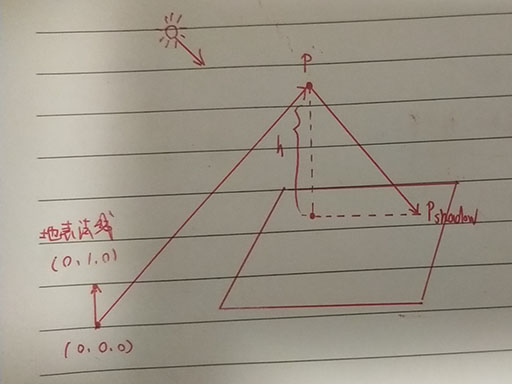 P
h
Pshadow
地表法线
(0,1,0)
(0,0,0)